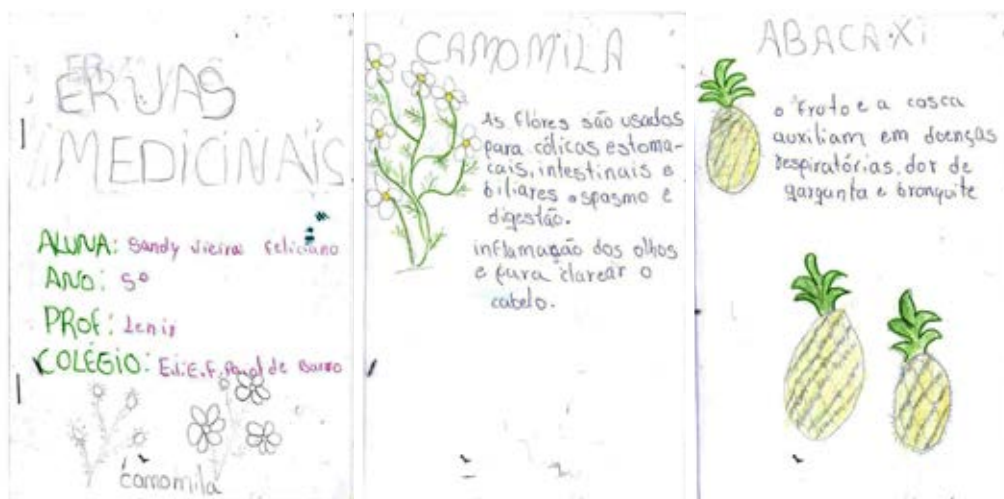 ERVAS
MEDICINAIS
ALUNA: Sandy Vieira Feliciano
ANO: 5º
PROF: Lenir
COLÉGIO: E.I.E.F. de Barro
camomila
CAMOMILA
As flores são usados
para cólicas estoma-
cais, intestinais e
biliares espasmo e
digestão.
inflamação dos olhos
e para clarear o
cabelo.
ABACAXi
o fruto e a casca
auxiliam em doenças
respiratórias, dor de
garganta e bronquite